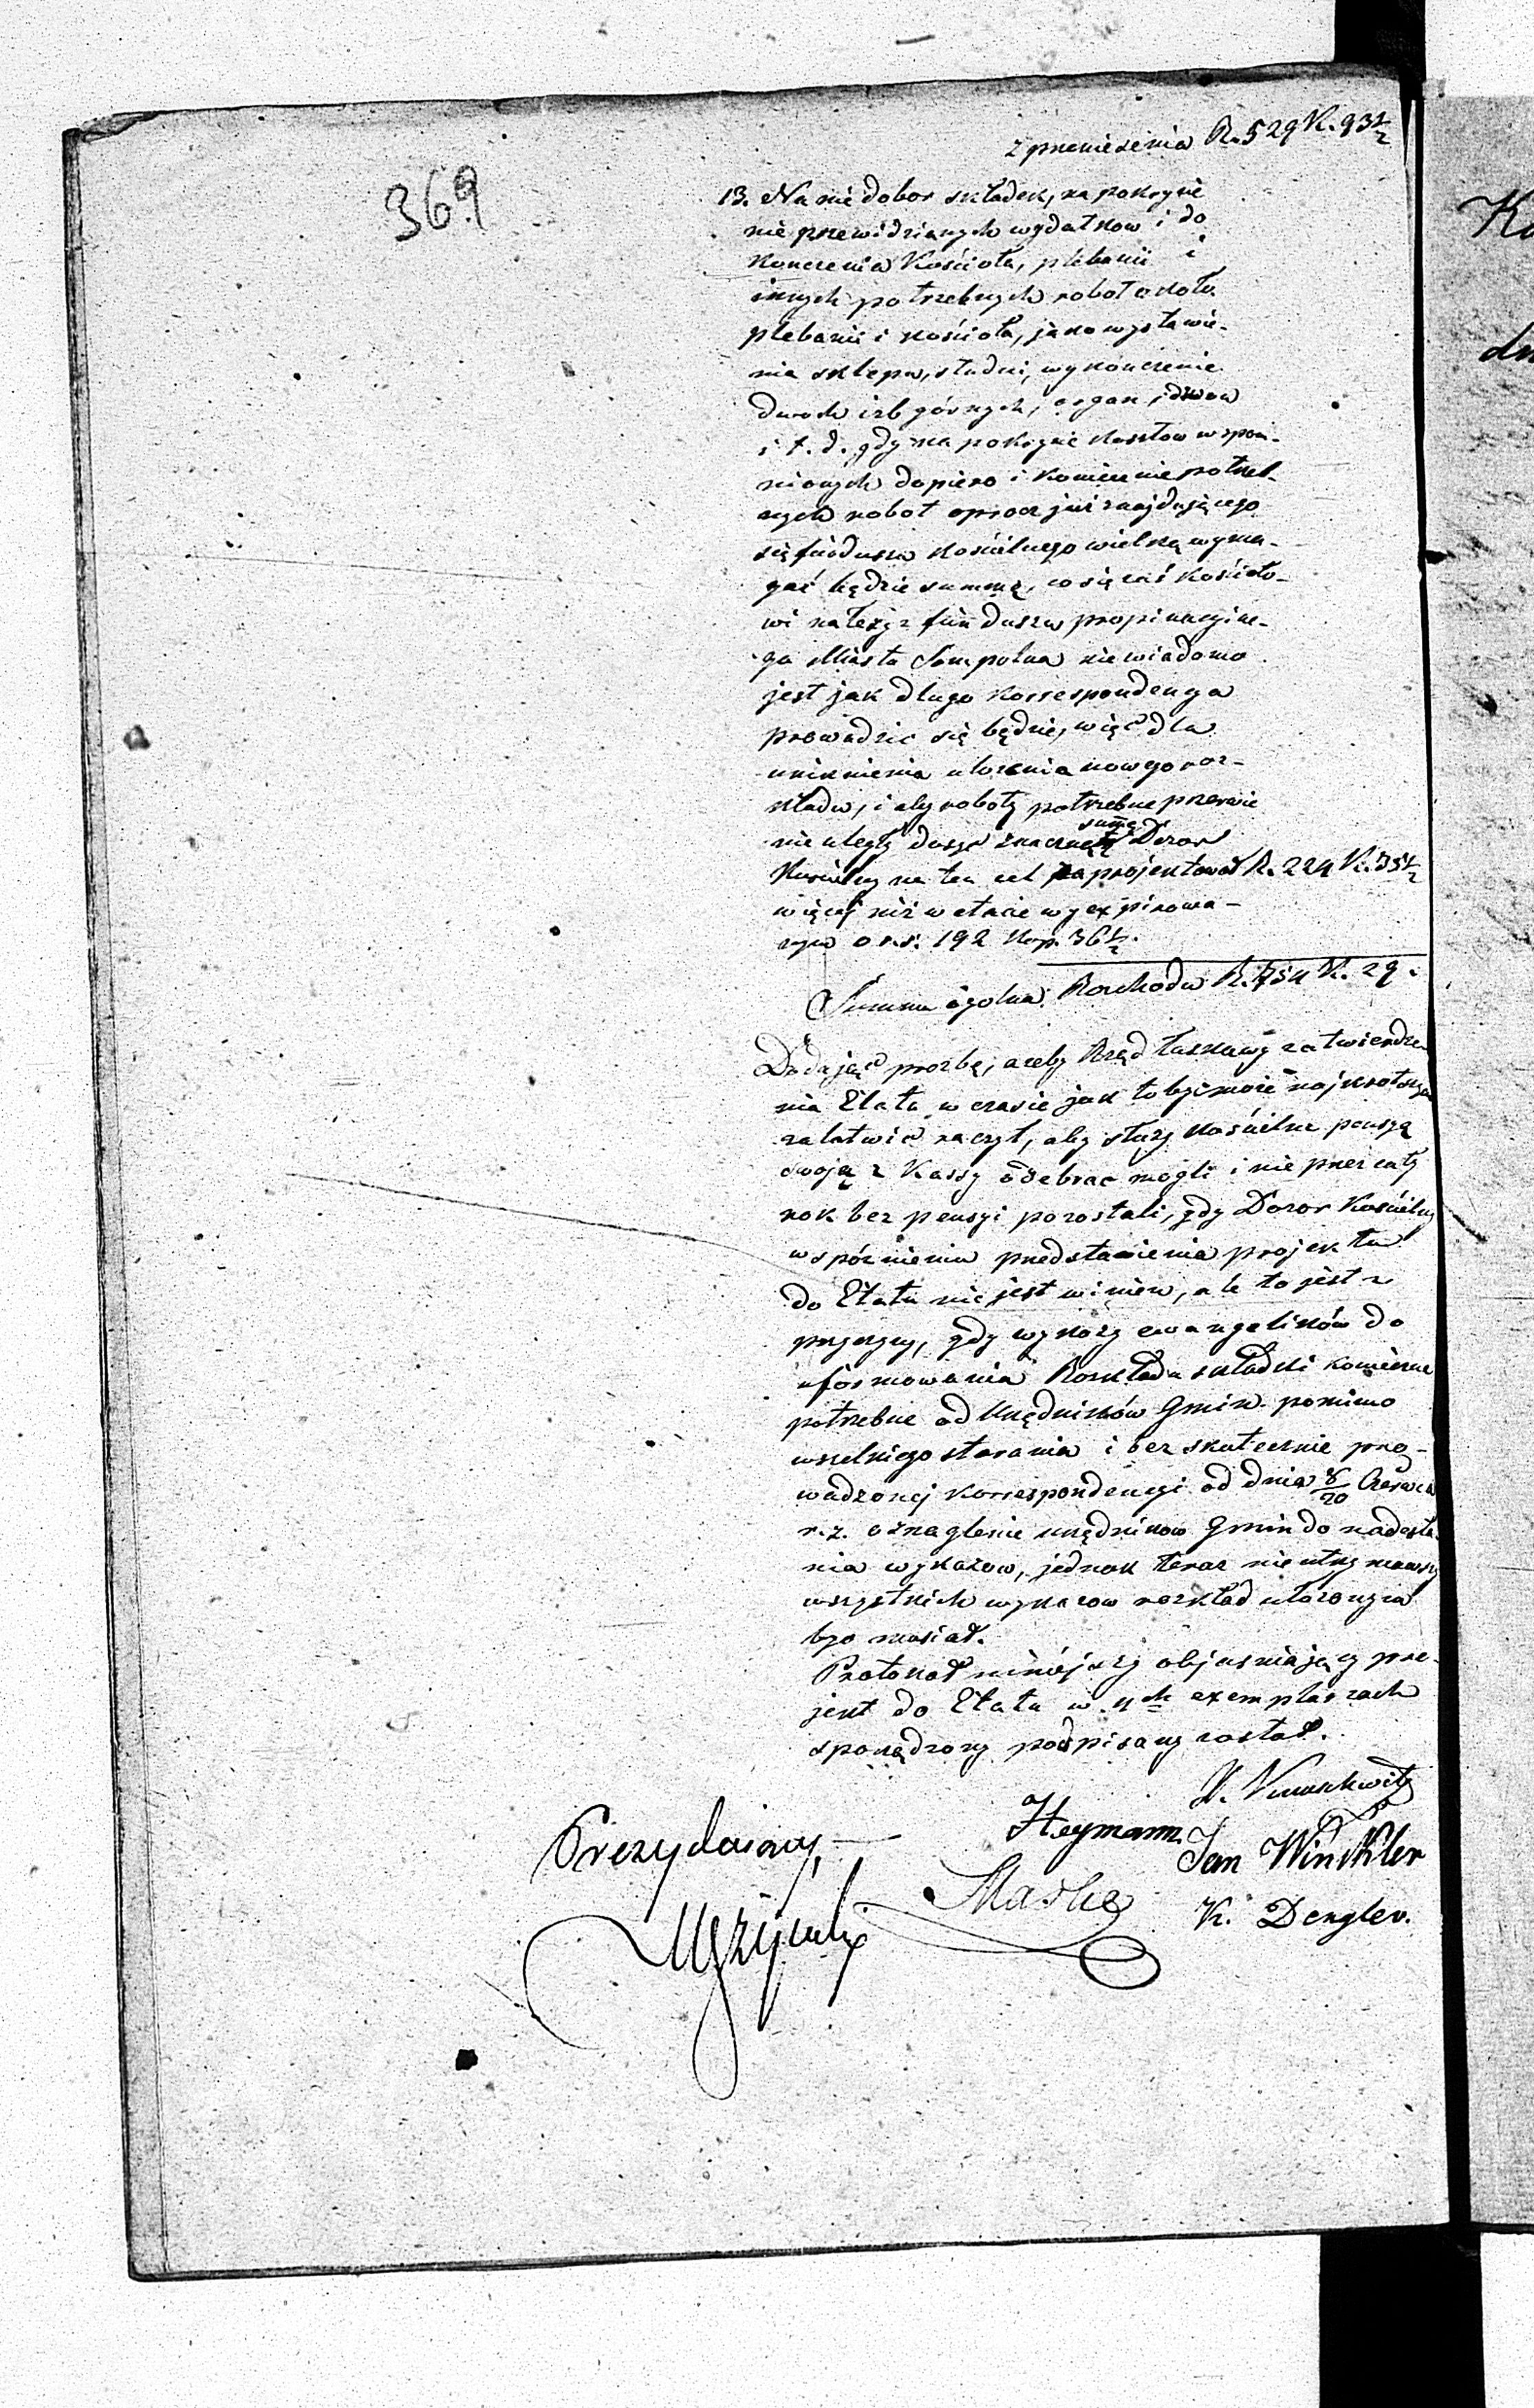 z przeniesienia R. 529 K. 93½
369
13. Na nie dobor składek, na pokrycie
nie przewidzianych wydatkow i do
konczenia Kościoła, plebanii i
innych potrzebnych robot około
plebanii i kościoła, jako wystawie-
nia sklepu, studni, wykończenie
dwoch izb górnych, organ,
i t. d. gdy na pokrycie kosztow wspom-
nionych dopiero i koniecznie potrzeb-
nych robot oprocz już znajdującego
się funduszu kościelnego wielką wyma-
gać będzie summę, co się zaś kościoło-
wi należy z funduszu propinacyjne-
go Miasta Sompolna nie wiadomo
jest jak długo korrespondencya
prowadzic się będzie, więc dla
uniknienia ułozenia nowego roz-
kładu, i aby roboty potrzebne przerwie
nie uległy dosyc znaczną sumę Dozor
Kościelny na ten cel zaprojektował R. 224 K. 35½
więcej niż w etacie wyexpirowa-
nym o r.s. 192 kop. 36½.
Summa ogolna Rozchodu R. 754 K. 29.
Dodając prozbę, azeby Rząd łaskawy zatwierdze-
nia Etatu w czasie jak to byc może najkrotszym
załatwić raczył, aby słudzy kościelne pensyą
swoją z Kassy odebrac mogli i nie przez cały
rok bez pensyi pozostali, gdy Dozor Kościelny
w spóznieniu przedstawienia projektu
do Etatu nie jest winien, ale to jest z
przyczyny, gdy wykazy ewangelików do
uformowania Rozkładu składki koniecznie
potrzebne od Urzędników Gmin pomimo
wszelkiego starania i bezskutecznie pro-
wadzonej korrespondencyi od dnia 8/20 Czerwca
r. z. o znaglenie urzędnikow Gmin do nadesła-
nia wykazow, jednak teraz nie otrzymawszy
wszystkich wykazow rozkład ułozony
byc musiał.
Protokuł niniejszy objasniający pro-
jekt do Etatu w 4ch exemplarzach
sporządzony podpisany został.
Prezydujący
Heymann
Jan Winckler
Maske
K. Dengler.